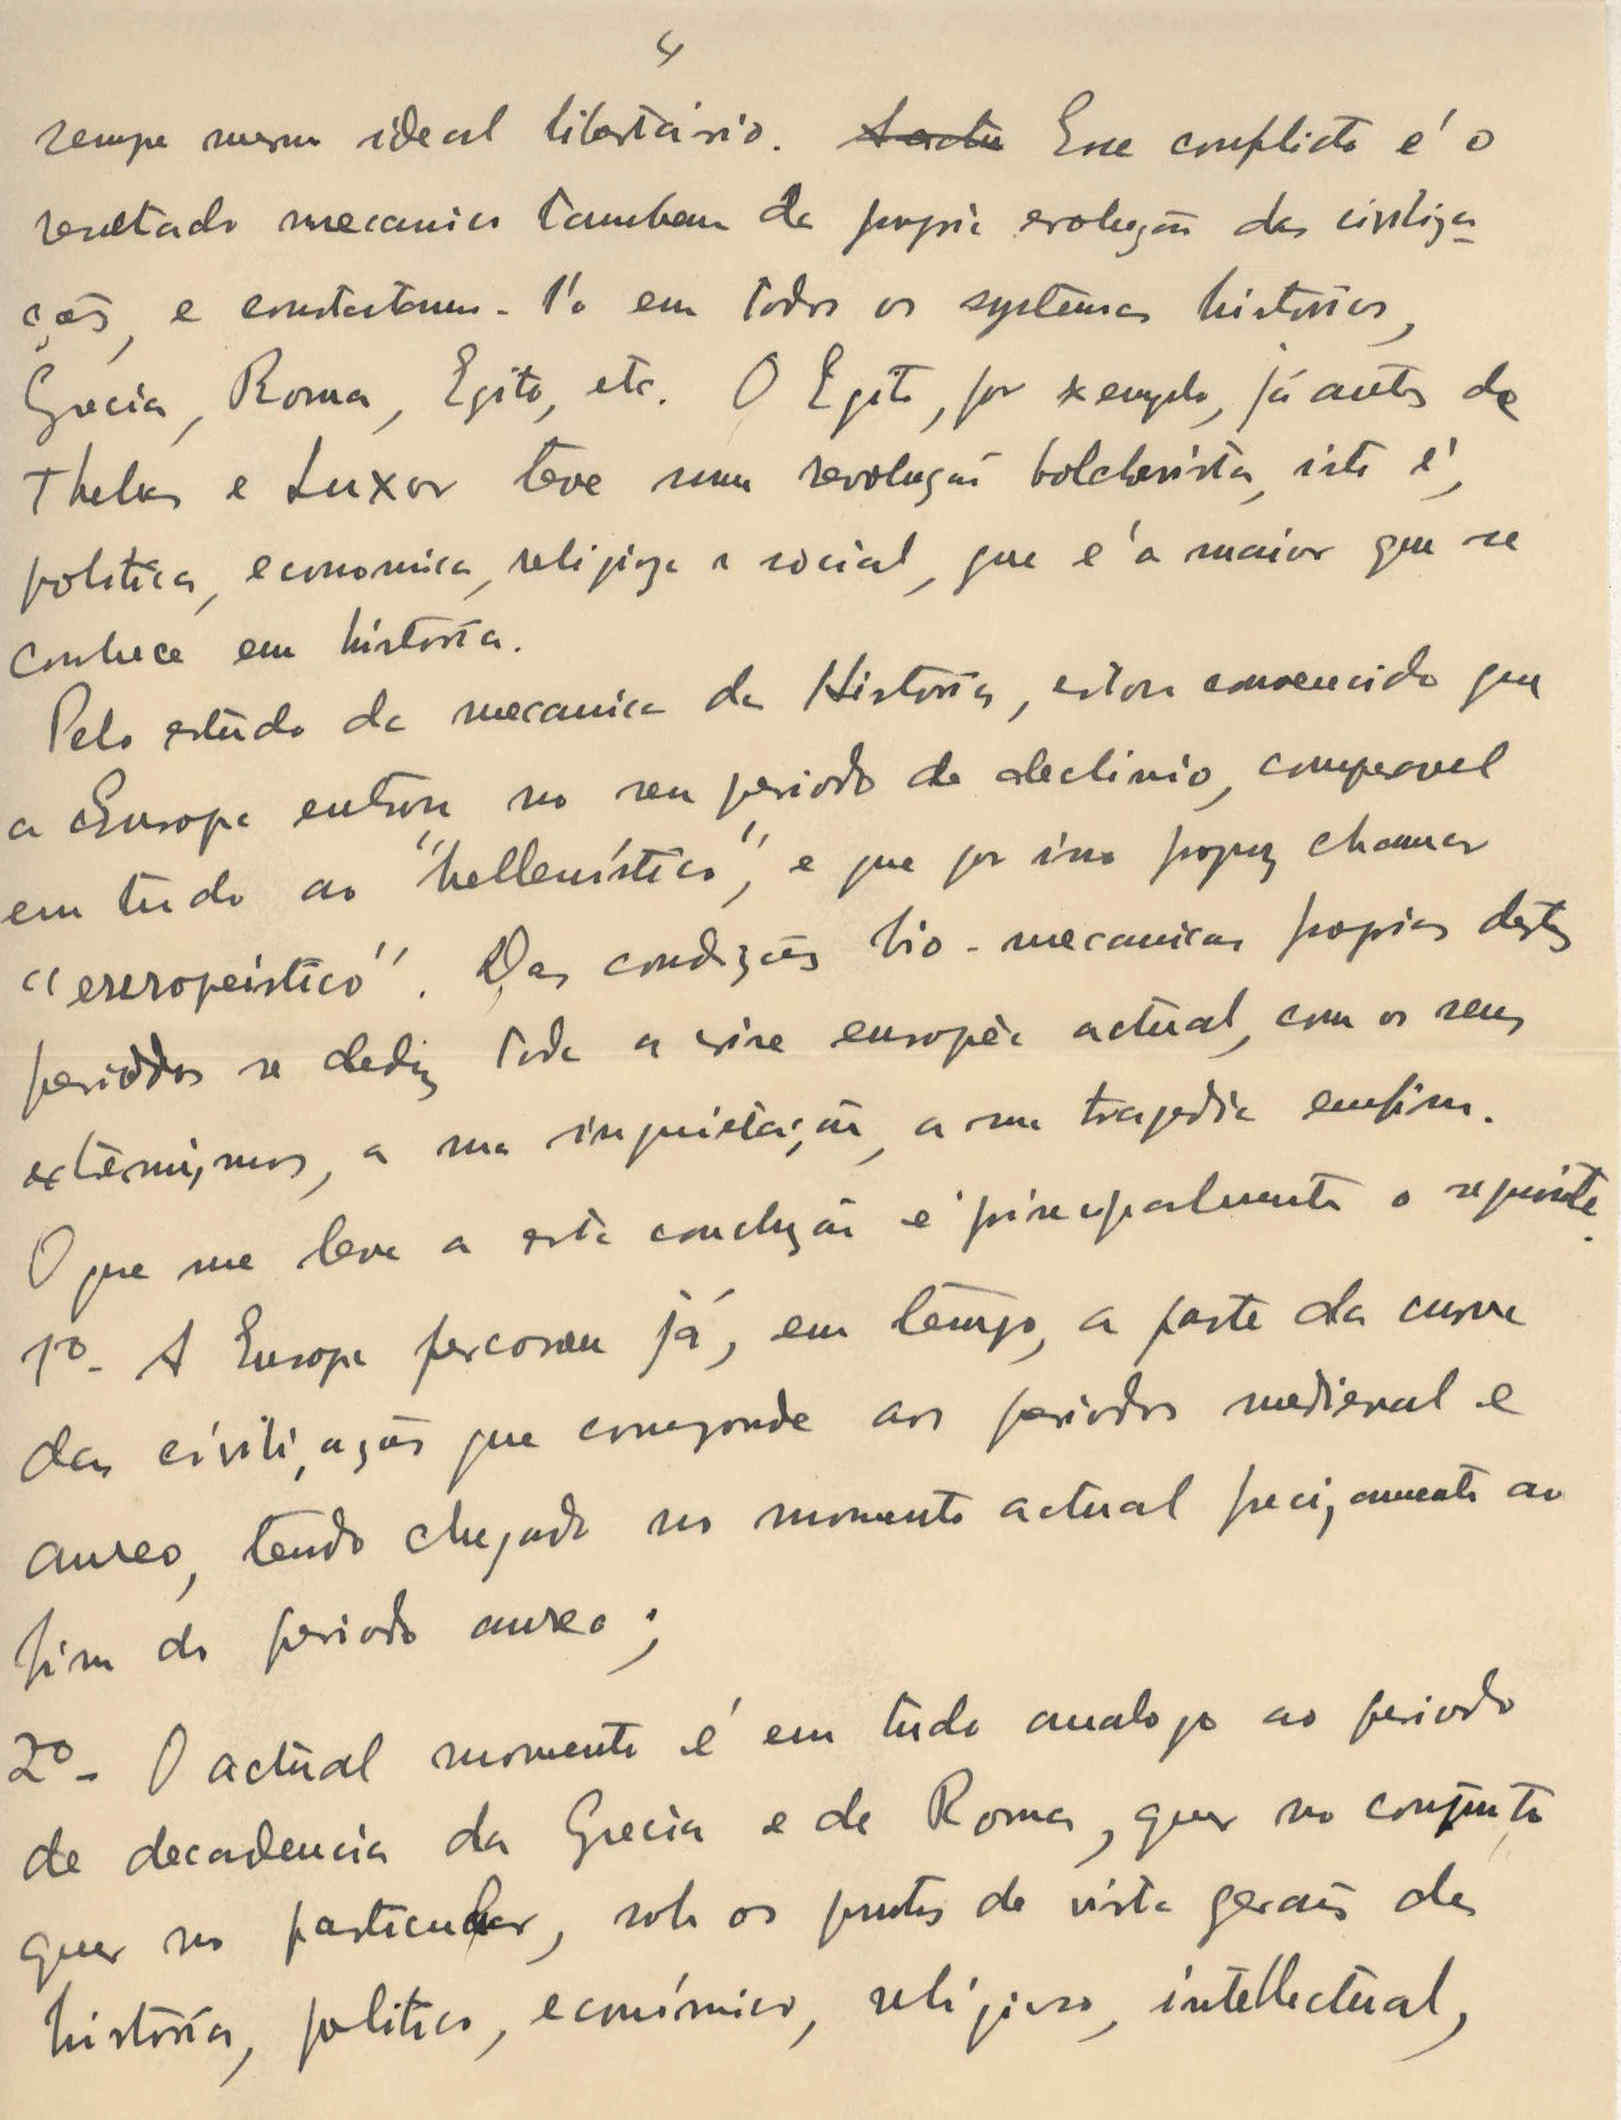 4
sempre mesmo ideal libertário. Esse conflicto é o
resultado mecanico tambem da propria evolução das civiliza-
ções, e constatamo-l'o em todos os systemas historicos,
Grecia, Roma, Egito, etc. O Egito, por exemplo, já antes de
Thebas e Luxor teve uma revolução bolchevista, isto é,
politica, economica, religioza e social, que é a maior que se
conhece em história.
Pelo estudo da mecanica da História, estou convencido que
a Europa entrou no seu periodo de declinio, comparavel
em tudo ao "hellenístico", e que por isso propuz chamar
"européistico". Das condições bio-mecanicas proprias destes
periodos se deduz toda a crise européa actual, com os seus
extremizmos, a sua inquietação, a sua tragedia emfim.
O que me leva a esta concluzão é principalmente o seguinte.
1º- A Europa percorreu já, em tempo, a parte da curva
das civilizações que corresponde aos periodos medieval e
aureo, tendo chegado no momento actual precizamente ao
fim do periodo aureo;
2º- O actual momento é em tudo analogo ao periodo
de decadencia da Grecia e de Roma, quer no conjunto
quer no particular, sob os pontos de vista geraes da
história, politico, económico, religioso, intellectual,